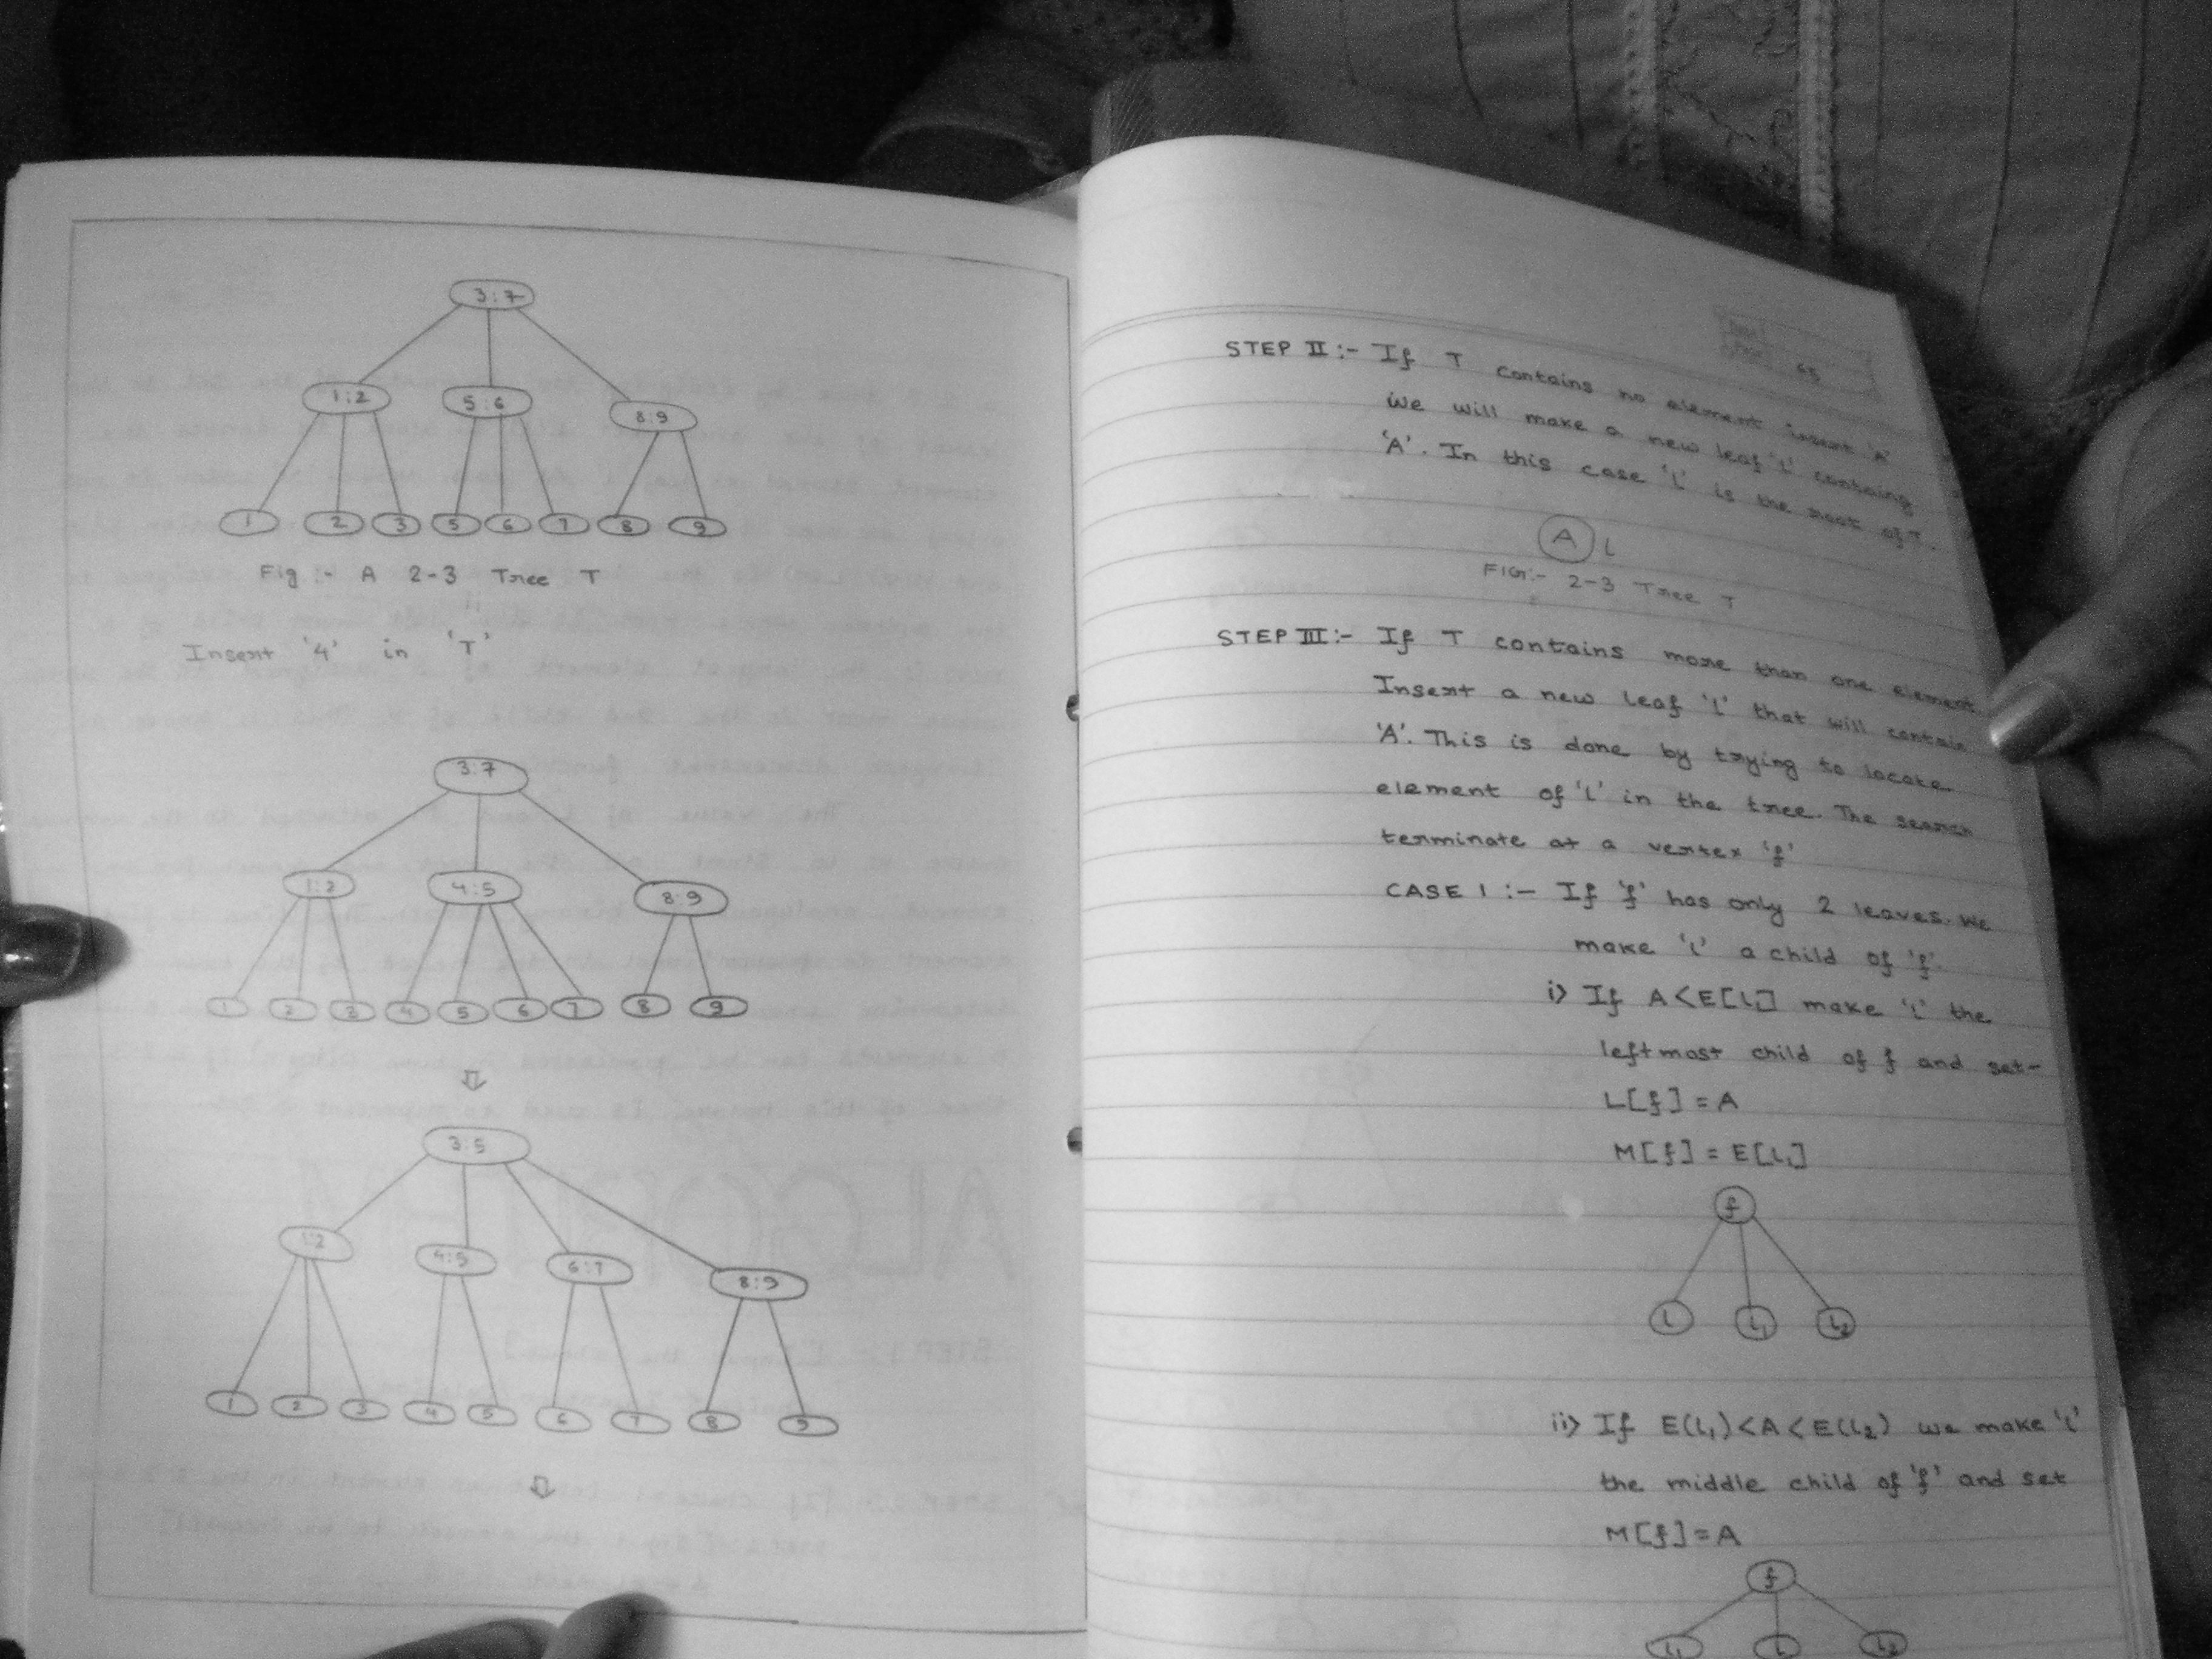 3:7
1:2 5:6 8:9
1 2 3 5 6 7 8 9
Fig :- A 2-3 Tree T
Insert '4' in 'T'
3:7
1:2 4:5 8:9
1 2 3 4 5 6 7 8 9
3:5
1:2 4:5 6:7 8:9
1 2 3 4 5 6 7 8 9
65
STEP II :- If T contains no element insert 'A'
we will make a new leaf 'l' containg
'A'. In this case 'l' is the root of T.
A L
FIG:- 2-3 Tree T
STEP III :- If T contains more than one element
Insert a new leaf 'l' that will contain
'A'. This is done by trying to locate
element of 'l' in the tree. The search
terminate at a vertex 'f'
CASE 1 :- If 'f' has only 2 leaves. We
make 'l' a child of 'f'.
i> If A<E[L] make 'l' the
leftmost child of f and set-
L[f] = A
M[f] = E[L1]
f
L L1 L2
ii> If E(L1)<A<E(L2) we make 'l'
the middle child of 'f' and set
M[f]=A
f
L1 L L2